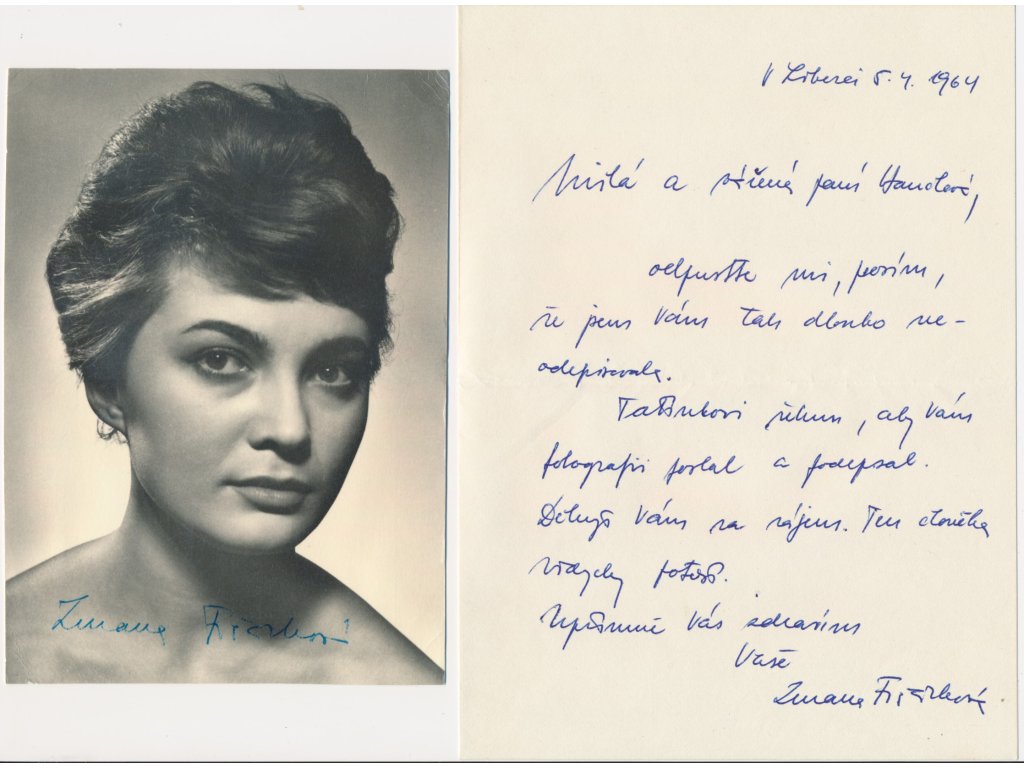 Zuzana Fišárková
V Liberci 5. 4. 1964
Milá a vážená paní Handlová,
odpusťte mi, prosím,
že jsem Vám tak dlouho ne-
odepisovala.
Tatínkovi řeknu, aby Vám
fotografii poslal a podepsal.
Děkuji Vám za zájem. Ten člověka
vždycky potěší.
Upřímně Vás zdravím
Vaše
Zuzana Fišárková